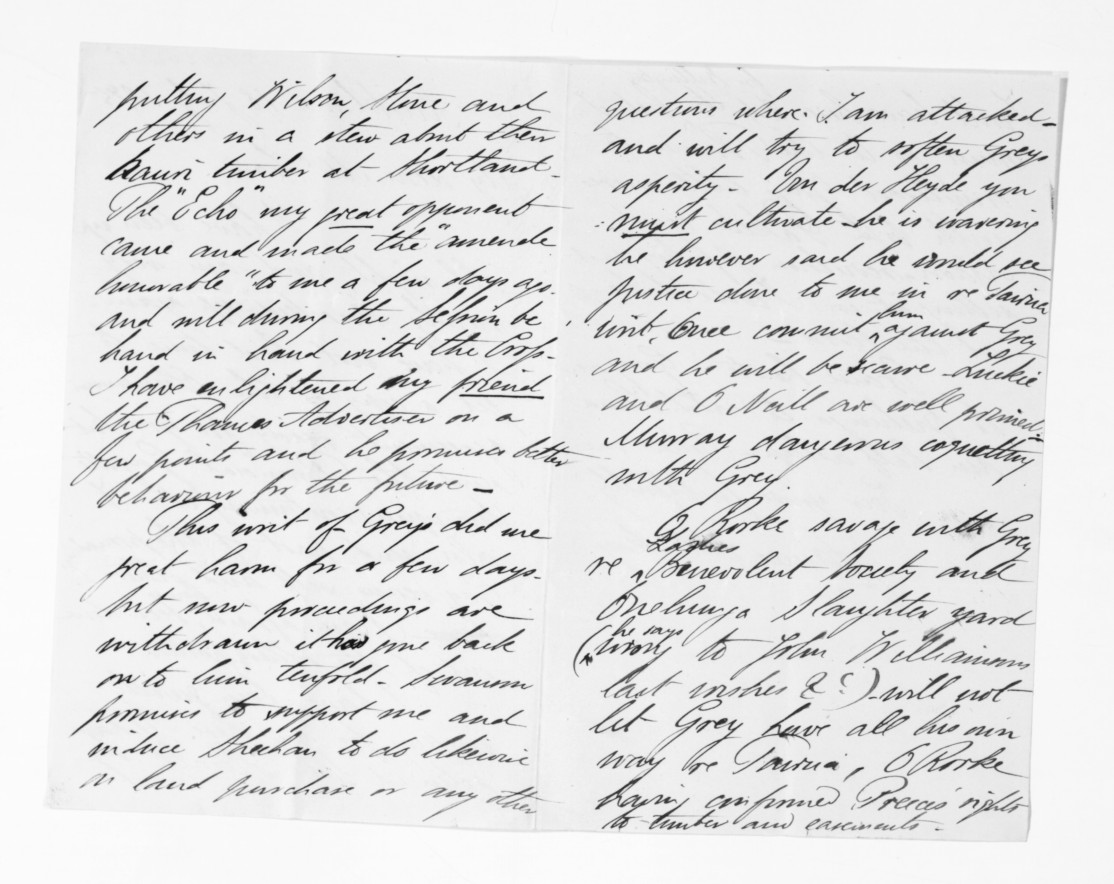 putting Wilson, Stone and
others in a stew about their
Kauri timber at Shortland -
The "Echo" my great opponent
came and made the "amende
honorable" to me a few days ago.
and will during the Session be
hand in hand with the Cross -
I have enlightened my friend
the Thames Advertiser on a
few points and he promises better
behaviour for the future -
This writ of Grey's did me
great harm for a few days -
but now proceedings are
withdrawn it has gone back
on to him tenfold - Swanson
promises to support me and
induce Sheehan to do likewise
on land purchase or any other
questions where I am attacked -
and will try to soften Greys
asperity - Van der Heyde you
must cultivate - he is wavering
he however said he would see
justice done to me in re Tairua
writ, Once commit him against Grey
and he will be secure - Luckie
and O Neill are well primed -
Murray dangerous coquetting
with Grey.
O Rorke savage with Grey
re Ladies Benevolent Society and
Onehunga Slaughter yard
(he says wrong to John Williamsons
last wishes &c) - will not
let Grey have all his own
way re Tairua, O Rorke
having confirmed Preeces rights
to timber and easements -